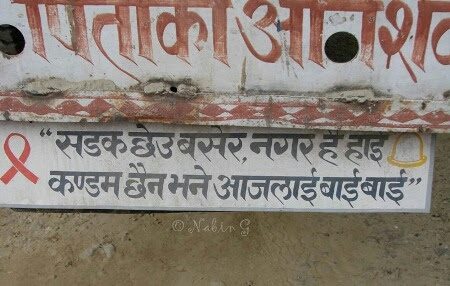 पिताको आशिर्वा
“सडक छेउ बसेर, नगर है हाइ
कण्डम छैन भने आजलाई बाई बाई”
© Nabin G